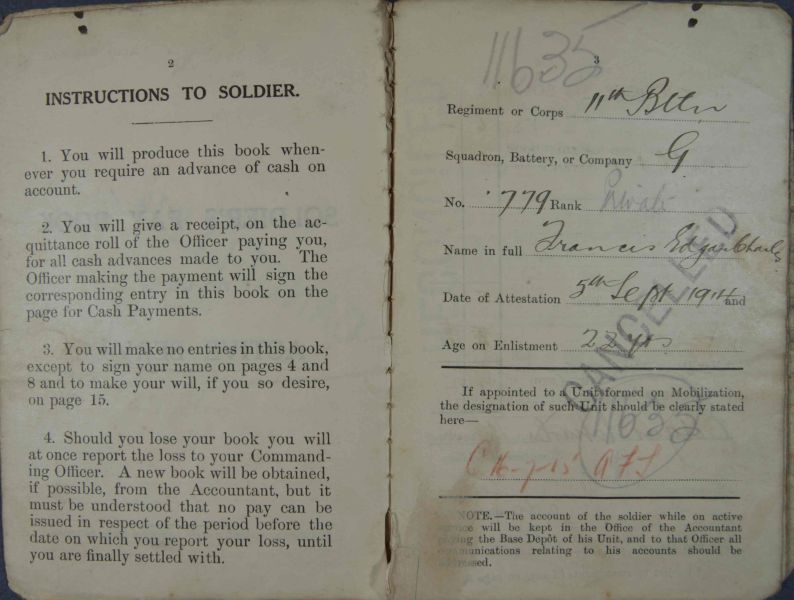 2
INSTRUCTIONS TO SOLDIER.
1. You will produce this book when-
ever you require an advance of cash on
account.
2. You will give a receipt, on the ac-
quittance roll of the Officer paying you,
for all cash advances made to you. The
Officer making the payment will sign the
corresponding entry in this book on the
page for Cash Payments.
3. You will make no entries in this book,
except to sign your name on pages 4 and
8 and to make your will, if you so desire,
on page 15.
4. Should you lose your book you will
at once report the loss to your Command-
ing Officer. A new book will be obtained,
if possible, from the Accountant, but it
must be understood that no pay can be
issued in respect of the period before the
date on which you report your loss, until
you are finally settled with.
11635
3
Regiment or Corps 11th Bttn
Squadron, Battery, or Company G
No. 779 Rank Private
Name in full Francis Edgar Charles
Date of Attestation 5th Sept 1914 and
Age on Enlistment 22 yrs
CANCELLED
If appointed to a Unit formed on Mobilization,
the designation of such Unit should be clearly stated
here—
11635
NOTE.—The account of the soldier while on active
will be kept in the Office of the Accountant
the Base Depôt of his Unit, and to that Officer all
relating to his accounts should be